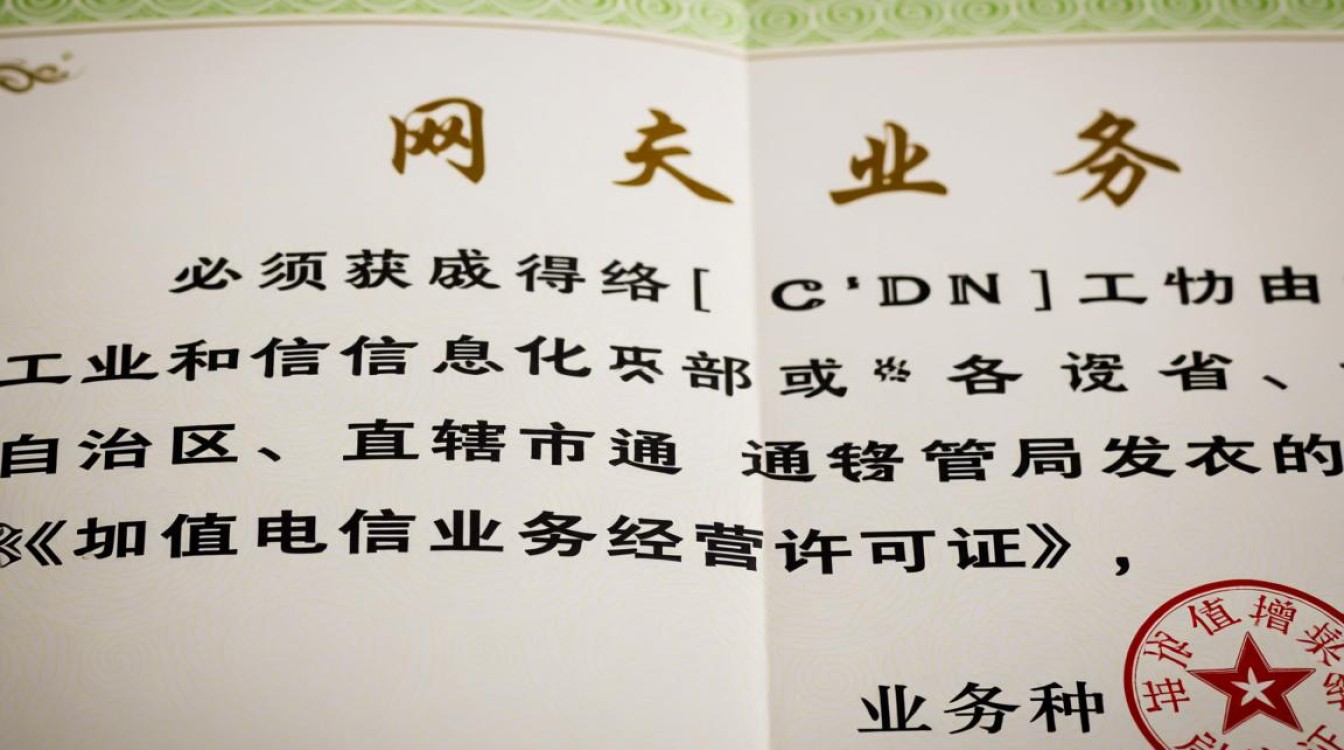 网 夫 业 务
必须获成得络[ C'DN]工 由
工业和信信息化 部或 各 设 省、
自治区、直辖市通 通 管局发衣的
《《加值电信业务经营许可证》，
业务种
值增